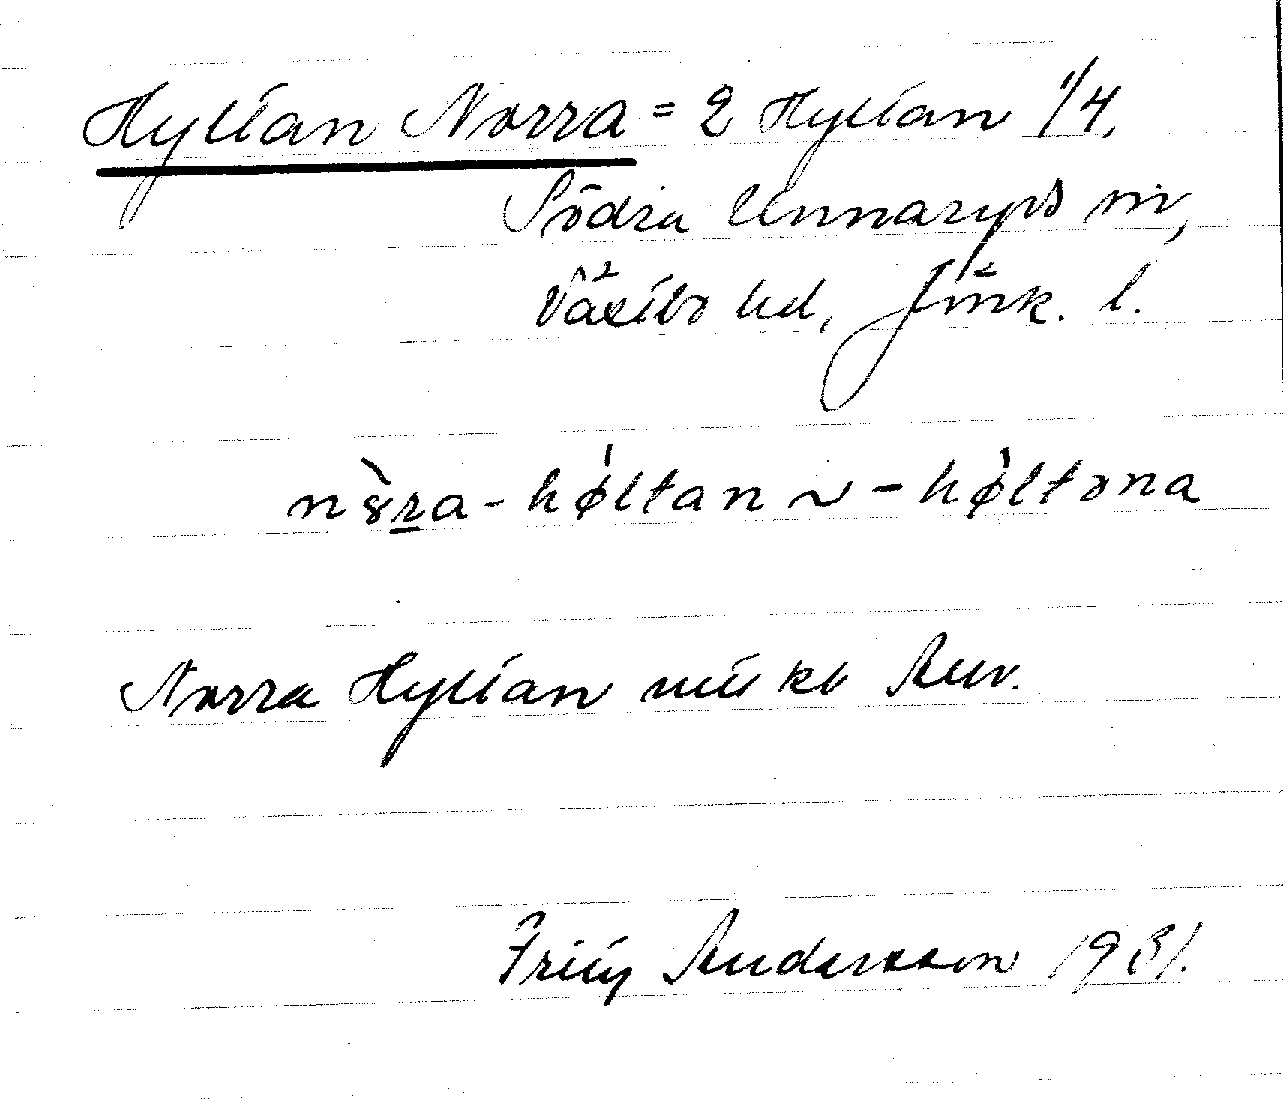 Hyltan Norra = 2 Hyltan 1/4,
Södra Unnaryds sn,
Västbo hd, Jönk. l.
nòra-hø̀ltan ~ -hø̀ltəna
Norra Hyltan
Fritz Andersson 1931.